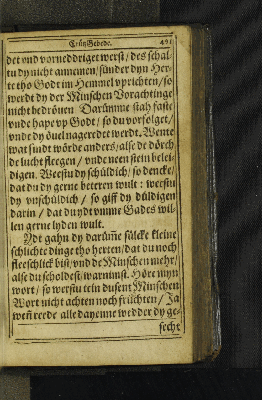 Crütz Gebede. 491
det vnd vornedriget werst / des schal-
tu dy nicht annemen / sünder dyn Her-
te tho Godt im Hemmel vprichten / so
werdt dy der Minschen Vorachtinge
nicht bedröuen. Darümme stah faste
vnde hape vp Godt / so du vorfolget /
vnde dy öuel nageredet werdt. Wente
wat sindt wörde anders / alse de dörch
de lucht fleegen / vnde neen stein belei-
digen. Weestu dy schüldich / so dencke /
dat du dy gerne beteren wult : weestu
dy vnschüldich / so giff dy düldigen
darin / dat du ydt vmme Gades wil-
len gerne lyden wult.
Ydt gahn dy darüm̄e sülcke kleine
schlichte dinge tho herten / dat du noch
fleeschlick bist / vnd de Minschen mehr /
alse du scholdest / warnimst. Höre myn
wort / so werstu tein dusent Minschen
Wort nicht achten noch früchten / Ja
weñ reede alle dayenne wedder dy ge-
secht